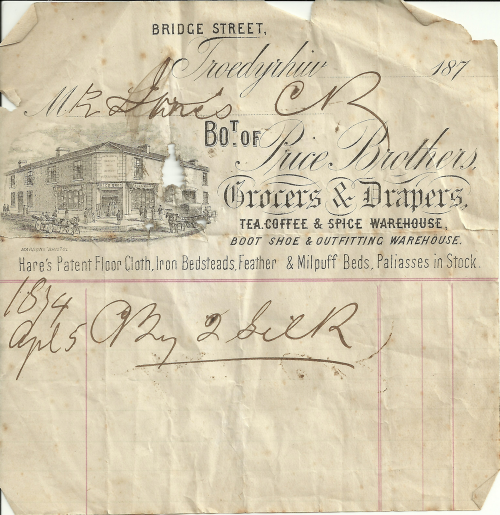 BRIDGE STREET,
Troedyrhiw 187
Mr Lewis CR
BOT. OF Price Brothers,
Grocers & Drapers,
TEA. COFFEE & SPICE WAREHOUSE,
BOOT SHOE & OUTFITTING WAREHOUSE.
Hare's Patent Floor Cloth, Iron Bedsteads, Feather & Milpuff Beds, Paliasses in Stock.
1874
Apl 5 By 2